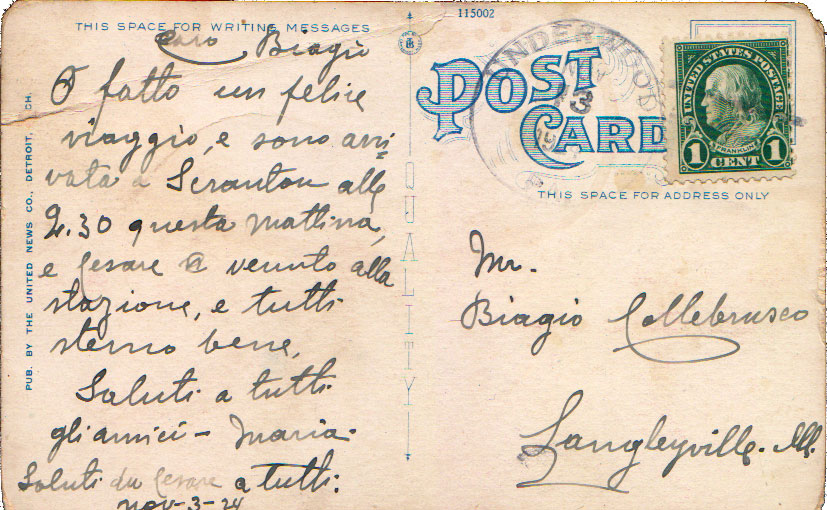 115002
THIS SPACE FOR WRITING MESSAGES
Caro Biagio
O fatto un felice
viaggio, e sono arri-
vata a Scranton alle
2.30 questa mattina,
e Cesare è venuto alla
stazione, e tutti
stemo bene,
Saluti a tutti
gli amici - Maria.
Saluti da Cesare a tutti.
Nov-3-24
PUB. BY THE UNITED NEWS CO., DETROIT, MICH.
QUALITY
POST
CARD
UNDERWOOD
NOV
3
UNITED STATES POSTAGE
FRANKLIN
1 CENT 1
THIS SPACE FOR ADDRESS ONLY
Mr.
Biagio Collebrusco
Langleyville. Ill.